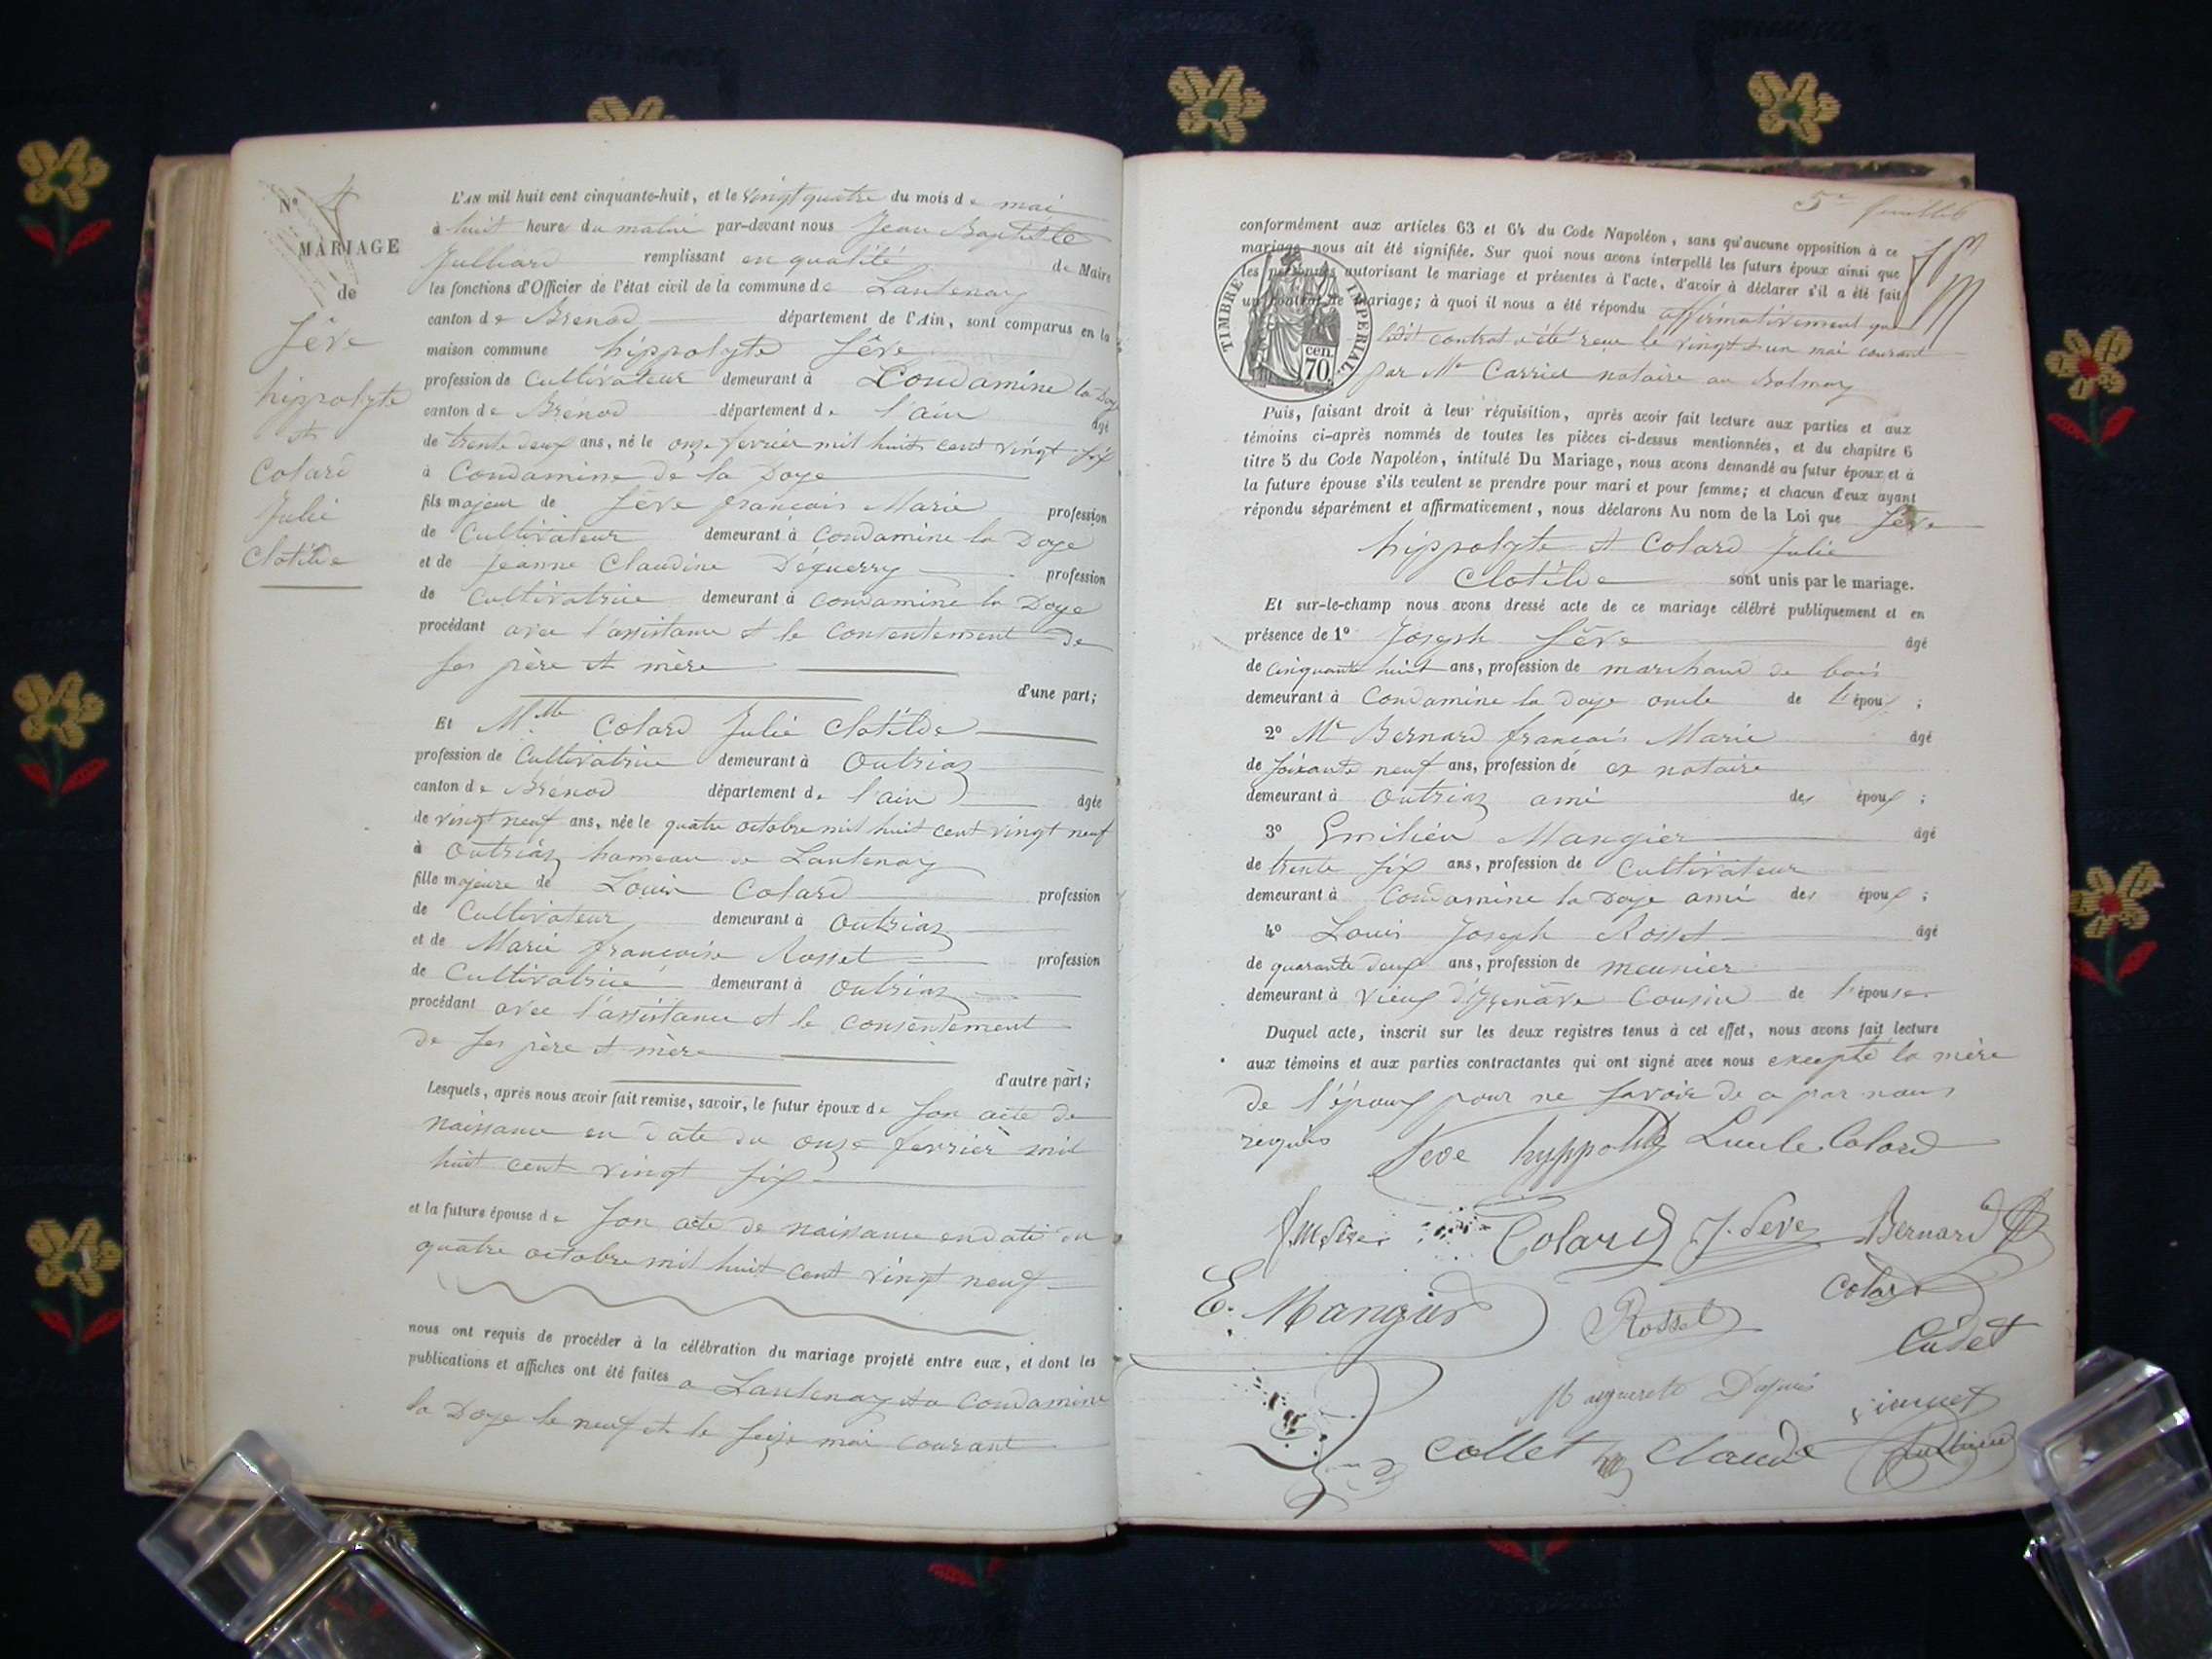 N° 4
MARIAGE
de
Sève
hippolyte
et
Colard
Julie
Clotilde
L'AN mil huit cent cinquante-huit, et le vingt quatre du mois de mai
à huit heure du matin par-devant nous Jean Baptiste
Julliard remplissant en qualité de Maire
les fonctions d'Officier de l'état civil de la commune de Lantenay
canton de Brénod département de l'Ain, sont comparus en la
maison commune hippolyte Sève
profession de Cultivateur demeurant à Condamine la Doye
canton de Brénod département de l'ain âgé
de trente deux ans, né le onze fevrier mil huit cent vingt six
à Condamine de la Doye
fils majeur de Sève francois Marie profession
de Cultivateur demeurant à Condamine la Doye
et de Jeanne Claudine Déguerry profession
de Cultivatrice demeurant à Condamine la Doye
procédant avec l'assistance et le consentement de
ses père et mère
d'une part;
Et Melle Colard Julie Clotilde
profession de Cultivatrice demeurant à Outriaz
canton de Brénod département de l'ain âgée
de vingt neuf ans, née le quatre octobre mil huit cent vingt neuf
à Outriaz hameau de Lantenay
fille majeure de Louis Colard profession
de Cultivateur demeurant à Outriaz
et de Marie francoise Rosset profession
de Cultivatrice demeurant à Outriaz
procédant avec l'assistance et le consentement
de ses père et mère
d'autre part;
Lesquels, après nous avoir fait remise, savoir, le futur époux de son acte de
naissance en date du onze fevrier mil
huit cent vingt six
et la future épouse de son acte de naissance en date du
quatre octobre mil huit cent vingt neuf
nous ont requis de procéder à la célébration du mariage projeté entre eux, et dont les
publications et affiches ont été faites a Lantenay et a Condamine
la Doye le neuf et le seize mai courant
5e feuillet
conformément aux articles 63 et 64 du Code Napoléon, sans qu'aucune opposition à ce
mariage nous ait été signifiée. Sur quoi nous avons interpellé les futurs époux ainsi que
les personnes autorisant le mariage et présentes à l'acte, d'avoir à déclarer s'il a été fait
un contrat de mariage; à quoi il nous a été répondu affirmativement que
ledit contrat a été reçu le vingt et un mai courant
par Me Carrier notaire au Balmay
TIMBRE IMPERIAL
70 cen.
Puis, faisant droit à leur réquisition, après avoir fait lecture aux parties et aux
témoins ci-après nommés de toutes les pièces ci-dessus mentionnées, et du chapitre 6
titre 5 du Code Napoléon, intitulé Du Mariage, nous avons demandé au futur époux et à
la future épouse s'ils veulent se prendre pour mari et pour femme; et chacun d'eux ayant
répondu séparément et affirmativement, nous déclarons Au nom de la Loi que Sève
hippolyte et Colard Julie
Clotilde sont unis par le mariage.
Et sur-le-champ nous avons dressé acte de ce mariage célébré publiquement et en
présence de 1° Joseph Sève âgé
de cinquante huit ans, profession de marchand de bois
demeurant à Condamine la doye oncle de l'époux;
2° Mr Bernard francois Marie âgé
de soixante neuf ans, profession de ex notaire
demeurant à Outriaz ami des époux;
3° Emilien Mangier âgé
de trente six ans, profession de Cultivateur
demeurant à Condamine la Doye ami des époux;
4° Louis Joseph Rosset âgé
de quarante deux ans, profession de meunier
demeurant à vieux d'Izenave Cousin de l'épouse.
Duquel acte, inscrit sur les deux registres tenus à cet effet, nous avons fait lecture
aux témoins et aux parties contractantes qui ont signé avec nous excepté la mère
de l'époux pour ne savoir de ce par nous
requis Seve hyppolite Colard
Colard J. Seve Bernard
E. Mangier Rosset Colard
Cadet
Collet Claude